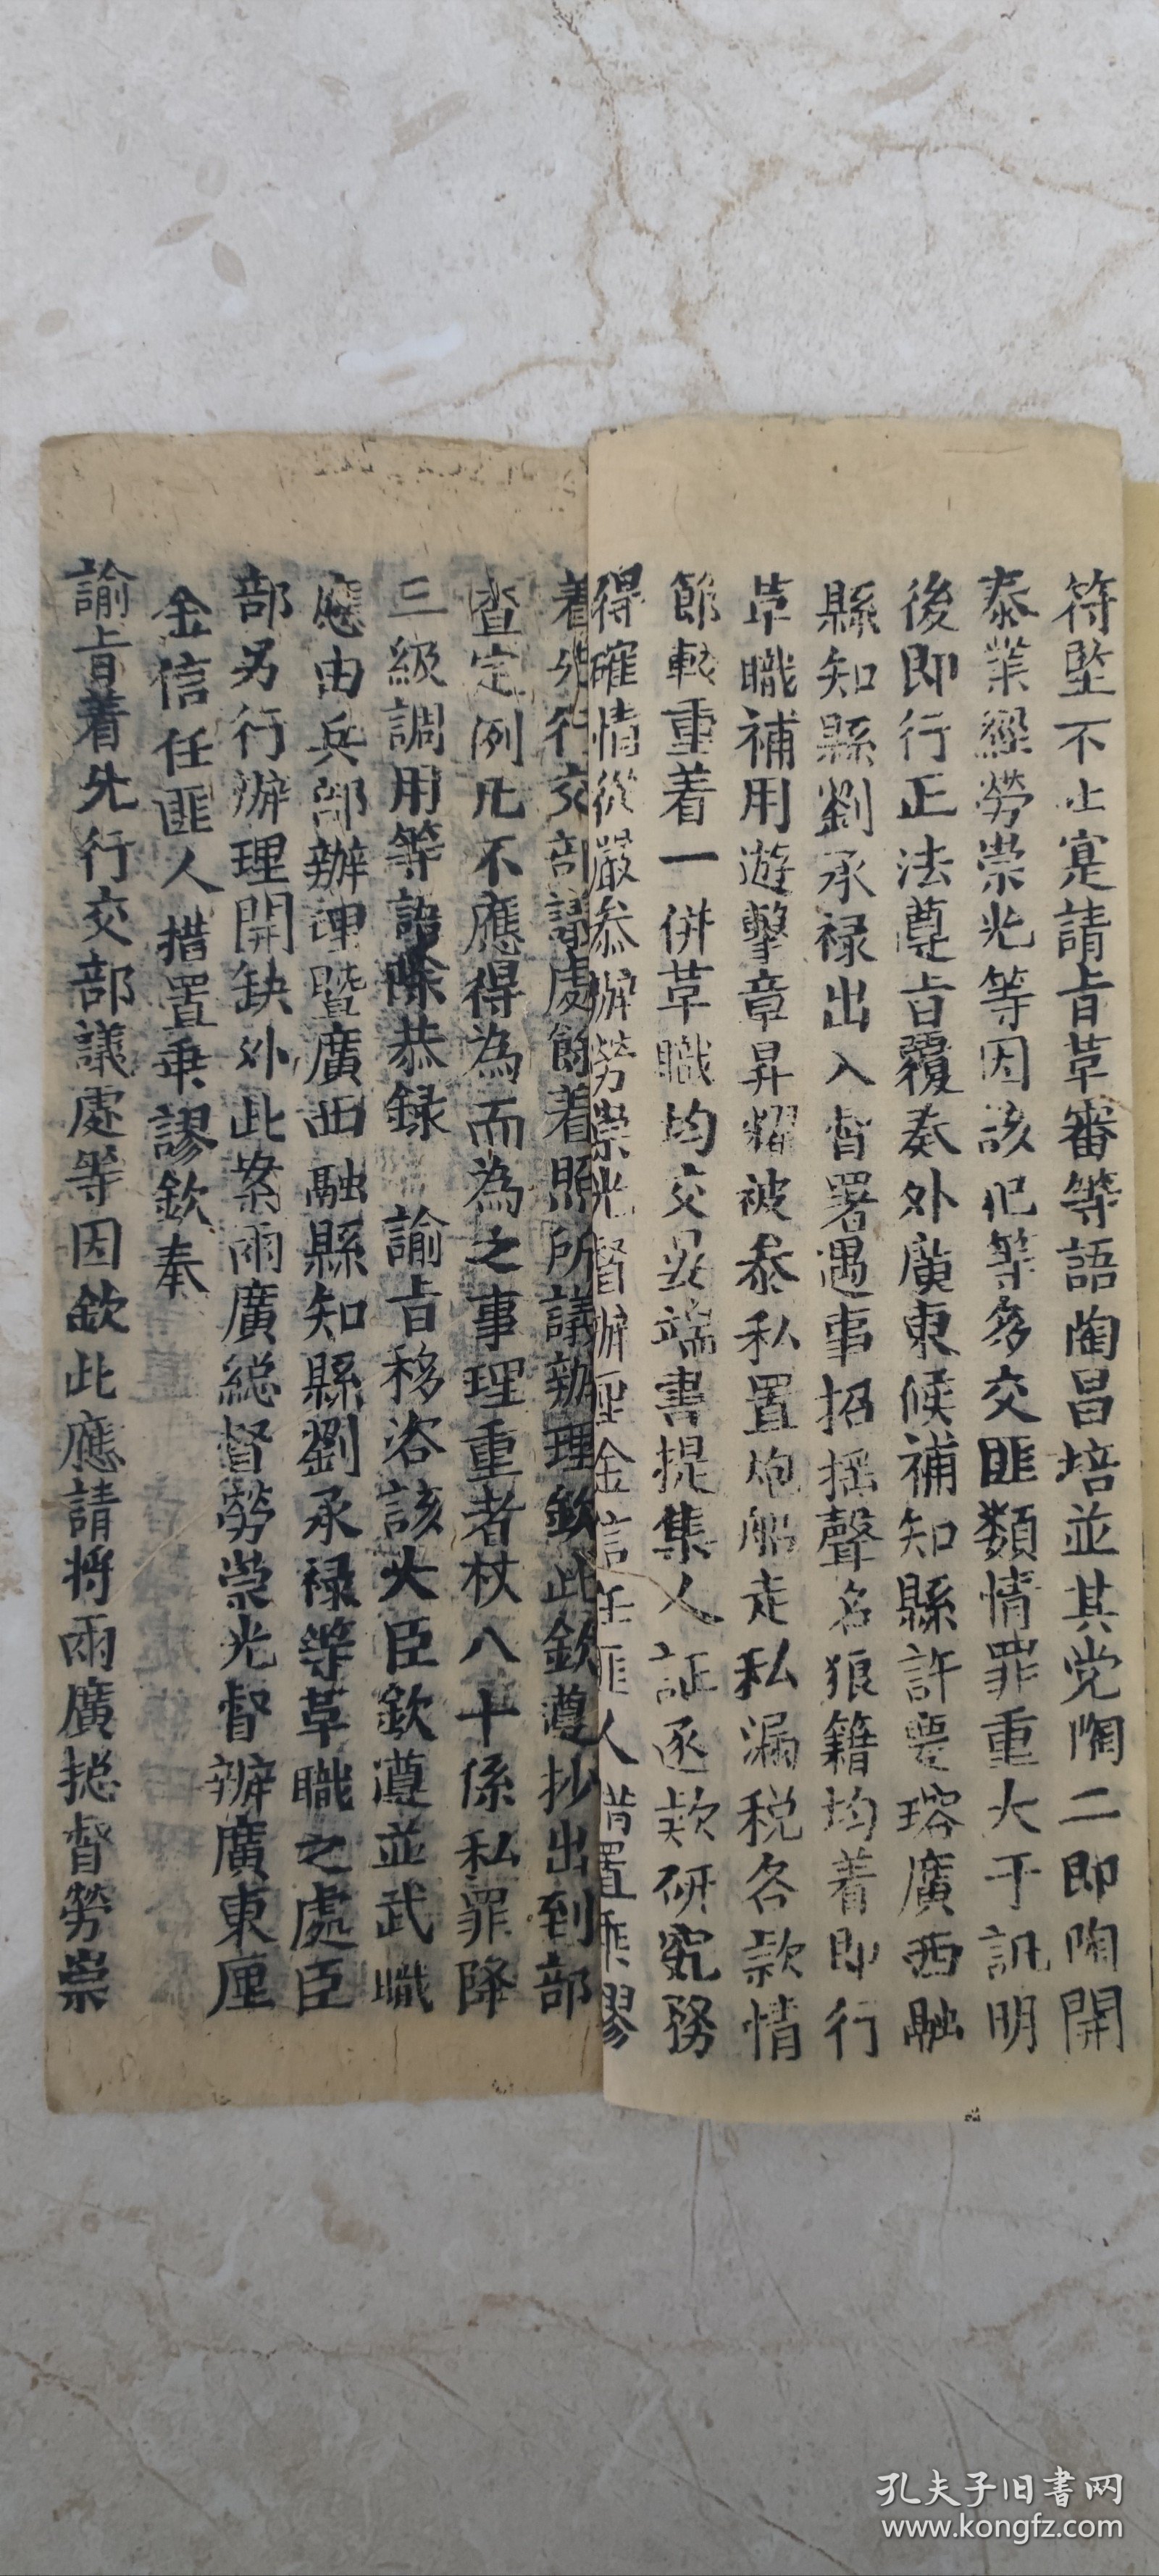 符堅不止寔請旨革審等語陶昌培並其党陶二即陶開
泰業經勞崇光等因該犯等多交匪類情罪重大于訊明
後即行正法遵旨覆奏外廣東候補知縣許要瑢廣西融
縣知縣劉承禄出入督署遇事招摇聲名狼籍均着即行
革職補用遊擊章昇耀被叅私置炮船走私漏税各款情
節較重着一併革職均交晏端書提集人証逐欵研究務
得確情從嚴叅辦勞崇光督辦厘金信任匪人措置乖謬
着先行交部議處餘着照所議辦理欽此欽遵抄出到部
查定例凡不應得為而為之事理重者杖八十係私罪降
三級調用等語除恭録 諭旨移咨該大臣欽遵並武職
應由兵部辦理暨廣西融縣知縣劉承禄等革職之處臣
部另行辦理開缺外此案兩廣総督勞崇光督辦廣東厘
金信任匪人措置乖謬欽奉
諭旨着先行交部議處等因欽此應請将兩廣揔督勞崇
孔夫子旧书网
www.kongfz.com